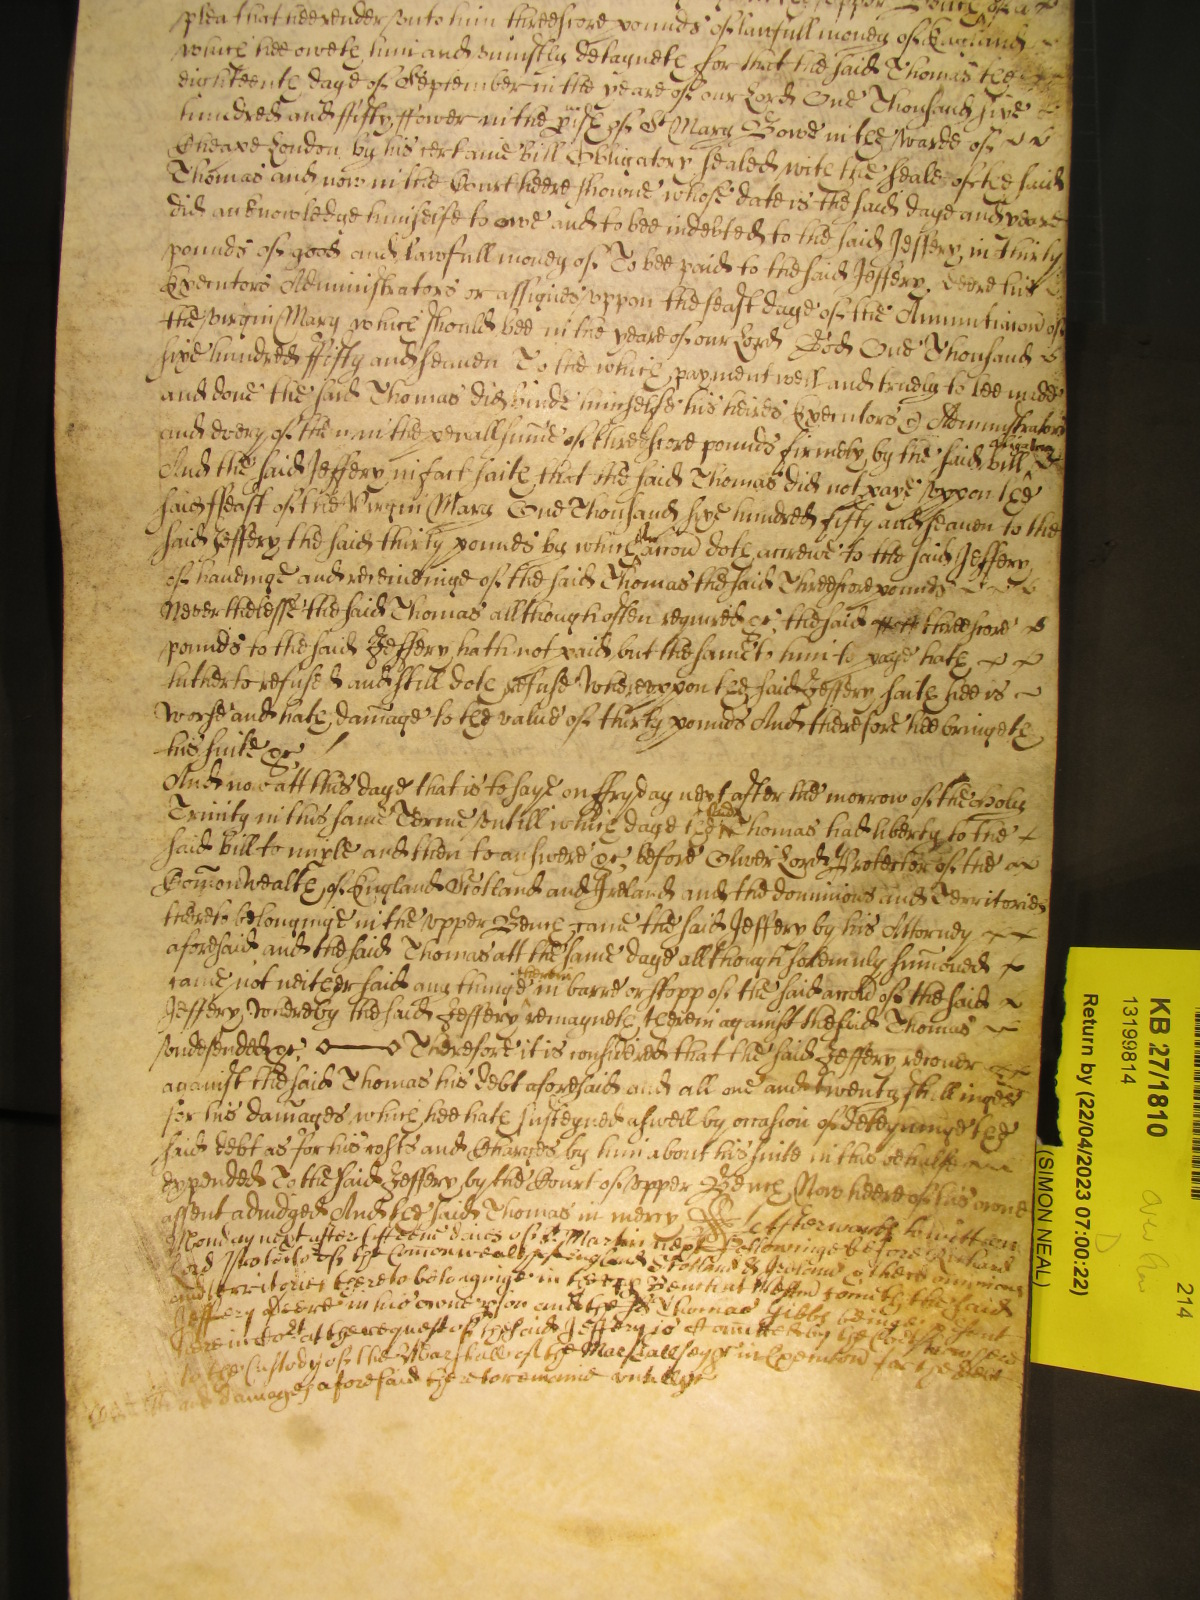 plea that hee render unto him threescore pounds of lawfull money of England
which hee oweth him and uniustly detayneth for that the said Thomas the
eighteenth daye of September in the yeare of our Lord One Thousand sixe
hundred and fifty fower in the pish of St Mary Bowe in the warde of
Cheape London by his certaine bill Obligatory sealed with the seale of the said
Thomas and now in the Court heere showne whose date is the said daye and yeare
did acknowledge himselfe to owe and to bee indebted to the said Jeffery in Thirty
pounds of good and lawfull money of To bee paid to the said Jeffery heere his
Executors Administrators or assignes uppon the feast daye of the Annuntiacon of
the virgin Mary which should bee in the yeare of our Lord God One Thousand
sixe hundred fifty and seaven To the which payment well and truely to bee made
and done the said Thomas did binde himselfe his heires Executors & Administrators
and every of them in the penall summe of threescore pounds firmely by the said bill obligatory
And the said Jeffery in fact saith that the said Thomas did not paye uppon the
said ffeast of the Virgin Mary One Thousand sixe hundred fifty and seaven to the
said Jeffery the said thirty pounds by which accon doth accrewe to the said Jeffery
of haveinge and receiveinge of the said Thomas the said Threescore pounds
Neverthelesse the said Thomas allthough often required &c the said threescore
pounds to the said Jeffery hath not paid but the same to him to paye hath
hitherto refused and still doth refuse Whereuppon the said Jeffery saith hee is
worse and hath damage to the value of thirty pounds And therefore hee bringeth
his suite &c
And now att this daye that is to saye on ffryday next after the morrow of the holy
Trinity in this same Terme untill which daye the said Thomas had liberty to the
said bill to imple and then to answere &c before Oliver Lord Protector of the
Comonwealth of England Scotland and Ireland and the dominions and Territories
thereto belonginge in the upper Bench came the said Jeffery by his Attorney
aforesaid and the said Thomas att the same daye allthough solemnly sumoned
came not neither said any thinge therein in barre or stopp of the said accon of the said
Jeffery Whereby the said Jeffery remayneth therein against the said Thomas
undefended &c Therefore it is considered that the said Jeffery recover
against the said Thomas his debt aforesaid and all one and twenty shillinges
for his damages which hee hath susteyned aswell by occasion of deteyninge the
said debt as for his costs and Charges by him about his suite in this behalfe
expended To the said Jeffery by the Court of upper Bench Now heere of his owne
assent adiudged And the said Thomas in mercy &c Afterwards to witt on
Monday next after fifteene daies of St Martin next followinge before Richard
Lord Protector of the Comonwealth of England Scotland & Ireland & the dominions
and Territories thereto belonginge in the upp Bench att Westm cometh the said
Jeffery heere in his owne pson and the sd Thomas Gibbs beinge psent
here in Cort at the request of the said Jeffery is comitted by the Cort heere
to the Custody of the Marshall of the Marshallsey &c in Execucon for the debt
and damages aforesaid there to remaine untill &c
KB 27/1810
13199814
Return by (22/04/2023 07:00:22)
(SIMON NEAL)
214
D